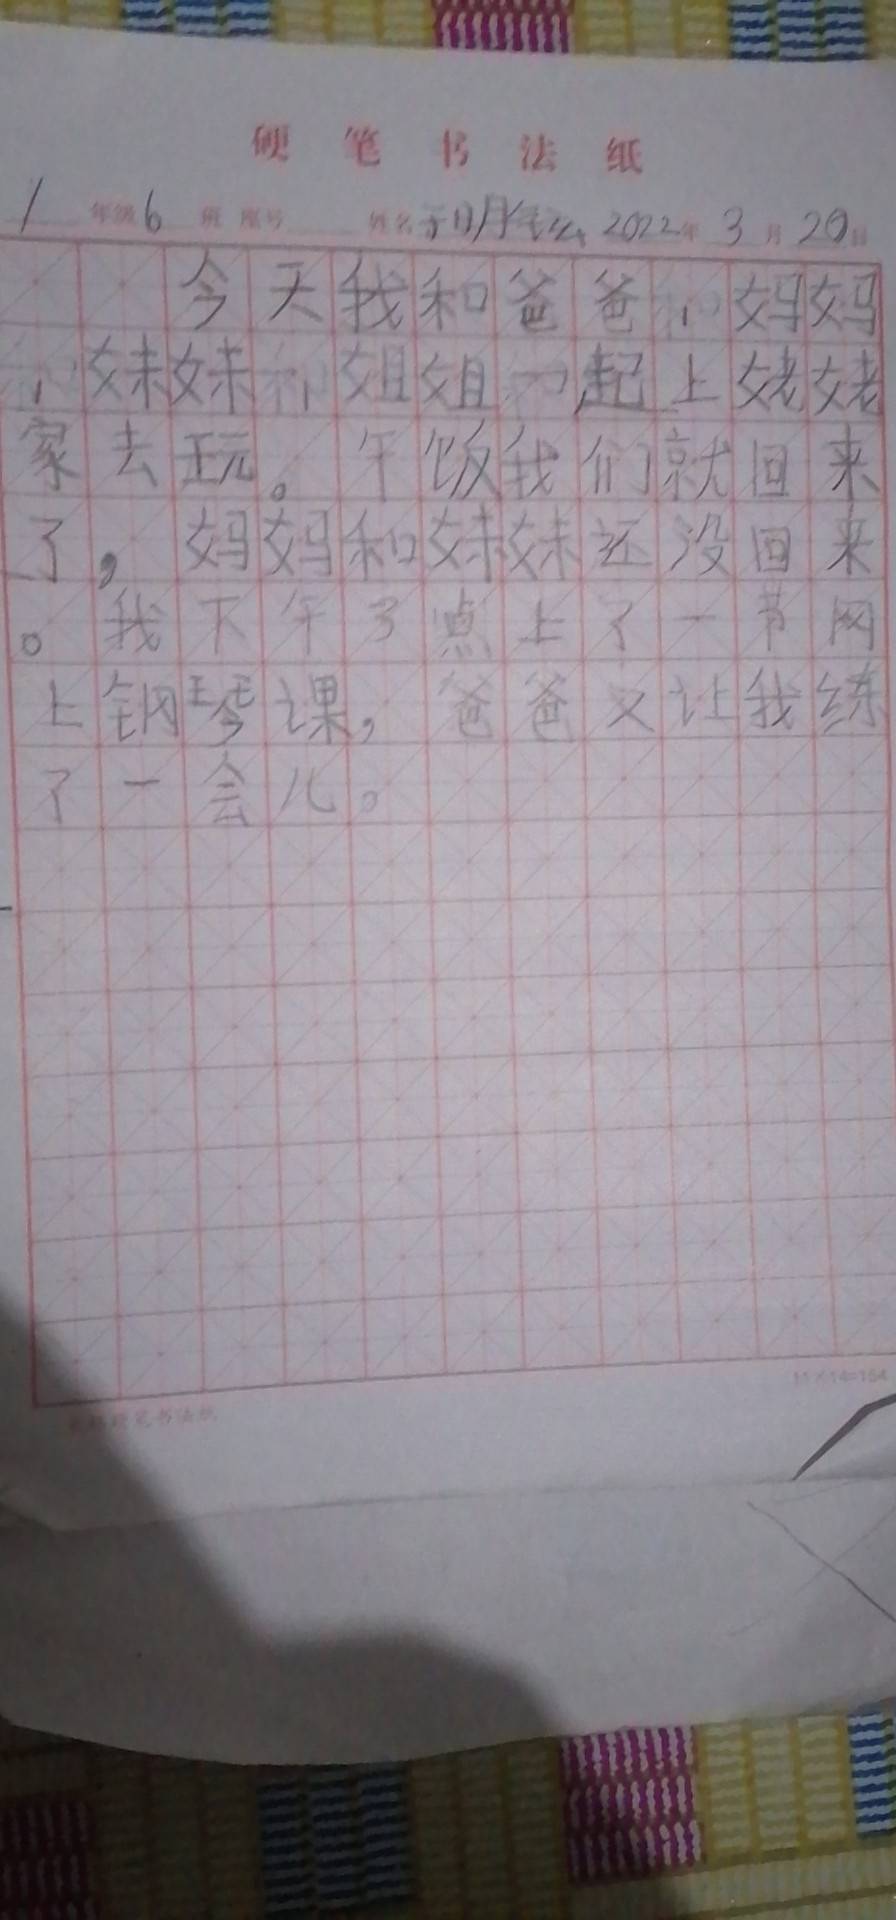 硬笔书法纸
1 年级 6 班 座号 姓名 2022年 3月 20日
今天我和爸爸、妈妈
、妹妹和姐姐一起上姥姥
家去玩。午饭我们就回来
了，妈妈和妹妹还没回来
。我下午3点上了一节网
上钢琴课，爸爸又让我练
了一会儿。
11×14=154
硬笔书法纸